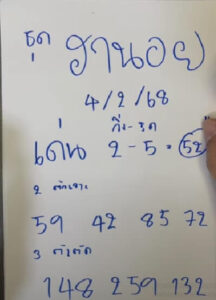 ชุด ฮานอย
4/2/68
กิ่ง-รูด
เด่น 2-5 = 52
2 ตัวเจาะ
59 42 85 72
3 ตัวตัด
148 259 132